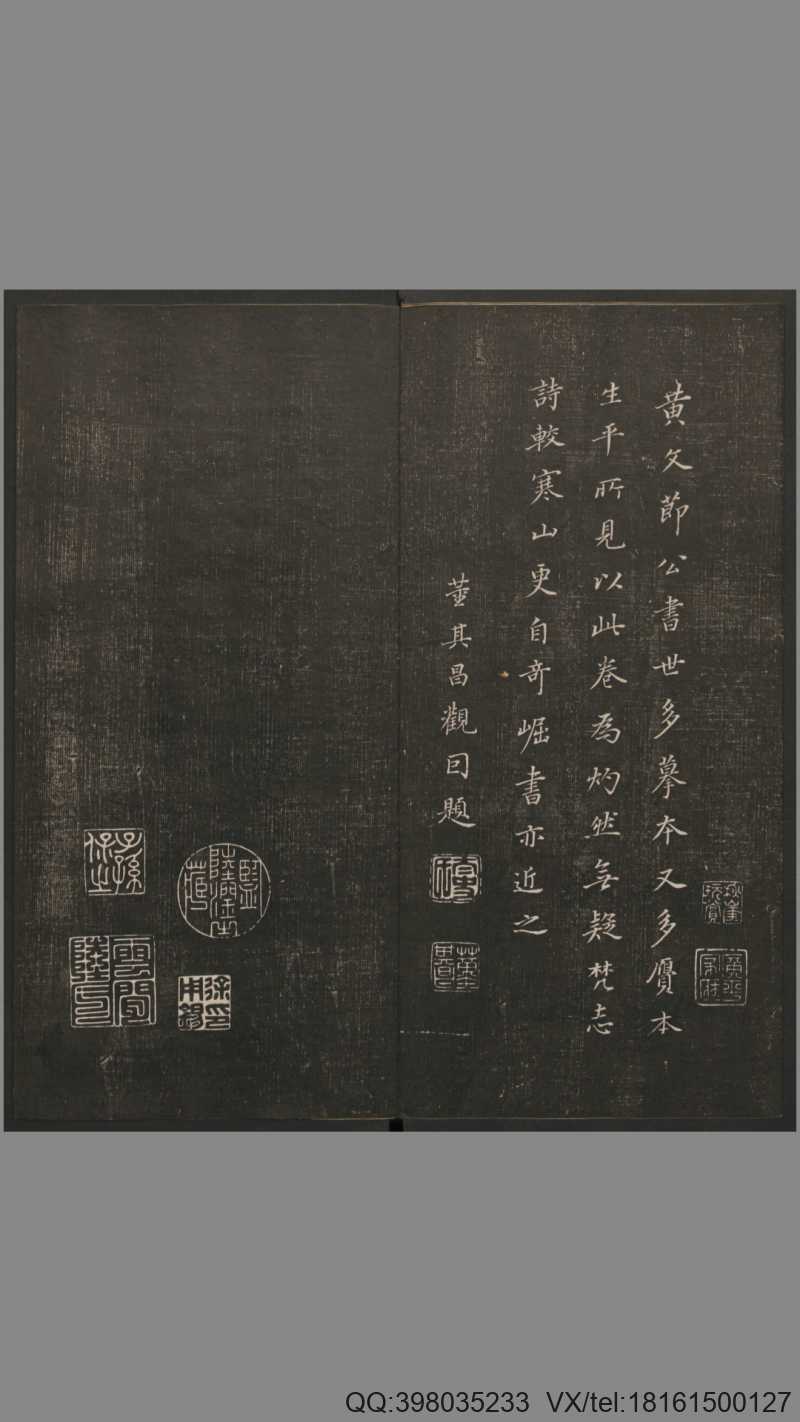 黄文節公書世多摹本又多贋本
生平所見以此卷為灼然無疑梵志
詩較寒山更自奇崛書亦近之
董其昌觀回題
雲間陸氏
QQ:398035233 VX/tel:18161500127